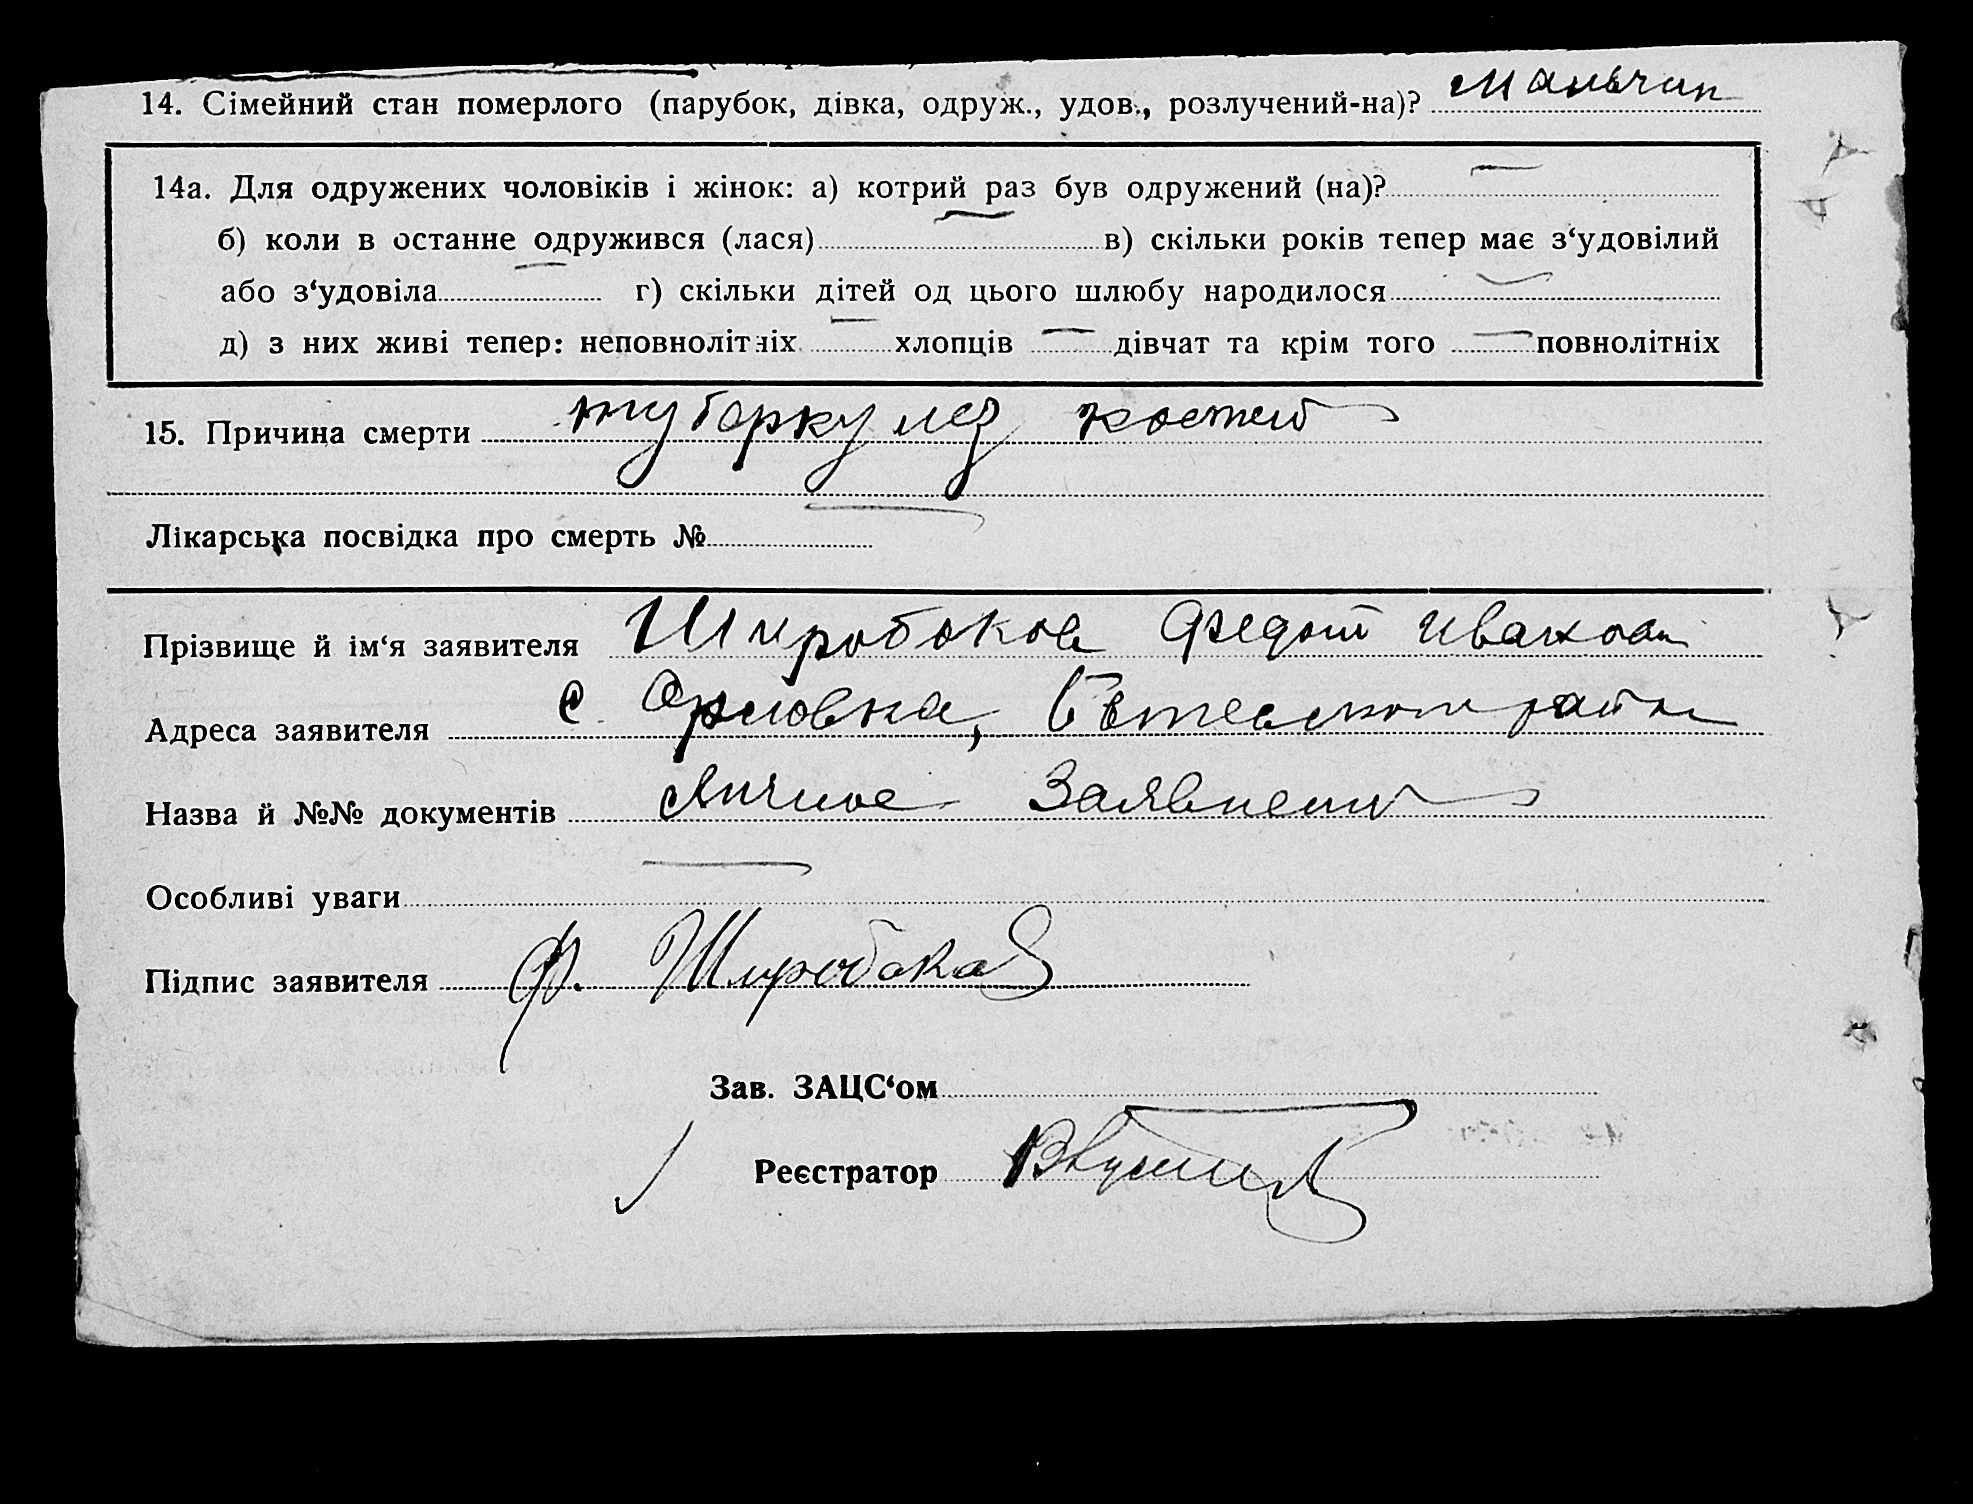 14. Сімейний стан померлого (парубок, дівка, одруж., удов., розлучений-на)? Мальчик
14а. Для одружених чоловіків і жінок: а) котрий раз був одружений (на)? —
б) коли в останне одружився (лася) — в) скільки років тепер має з‘удовілий
або з‘удовіла — г) скільки дітей од цього шлюбу народилося —
д) з них живі тепер: неповнолітніх — хлопців — дівчат та крім того — повнолітніх
15. Причина смерти туберкулез костей
Лікарська посвідка про смерть № —
Прізвище й ім‘я заявителя Широбоков Федот Иванов
Адреса заявителя с. Орловка, района
Назва й №№ документів Личное Заявление
Особливі уваги —
Підпис заявителя Ф. Широбоков
Зав. ЗАЦС‘ом
Реєстратор